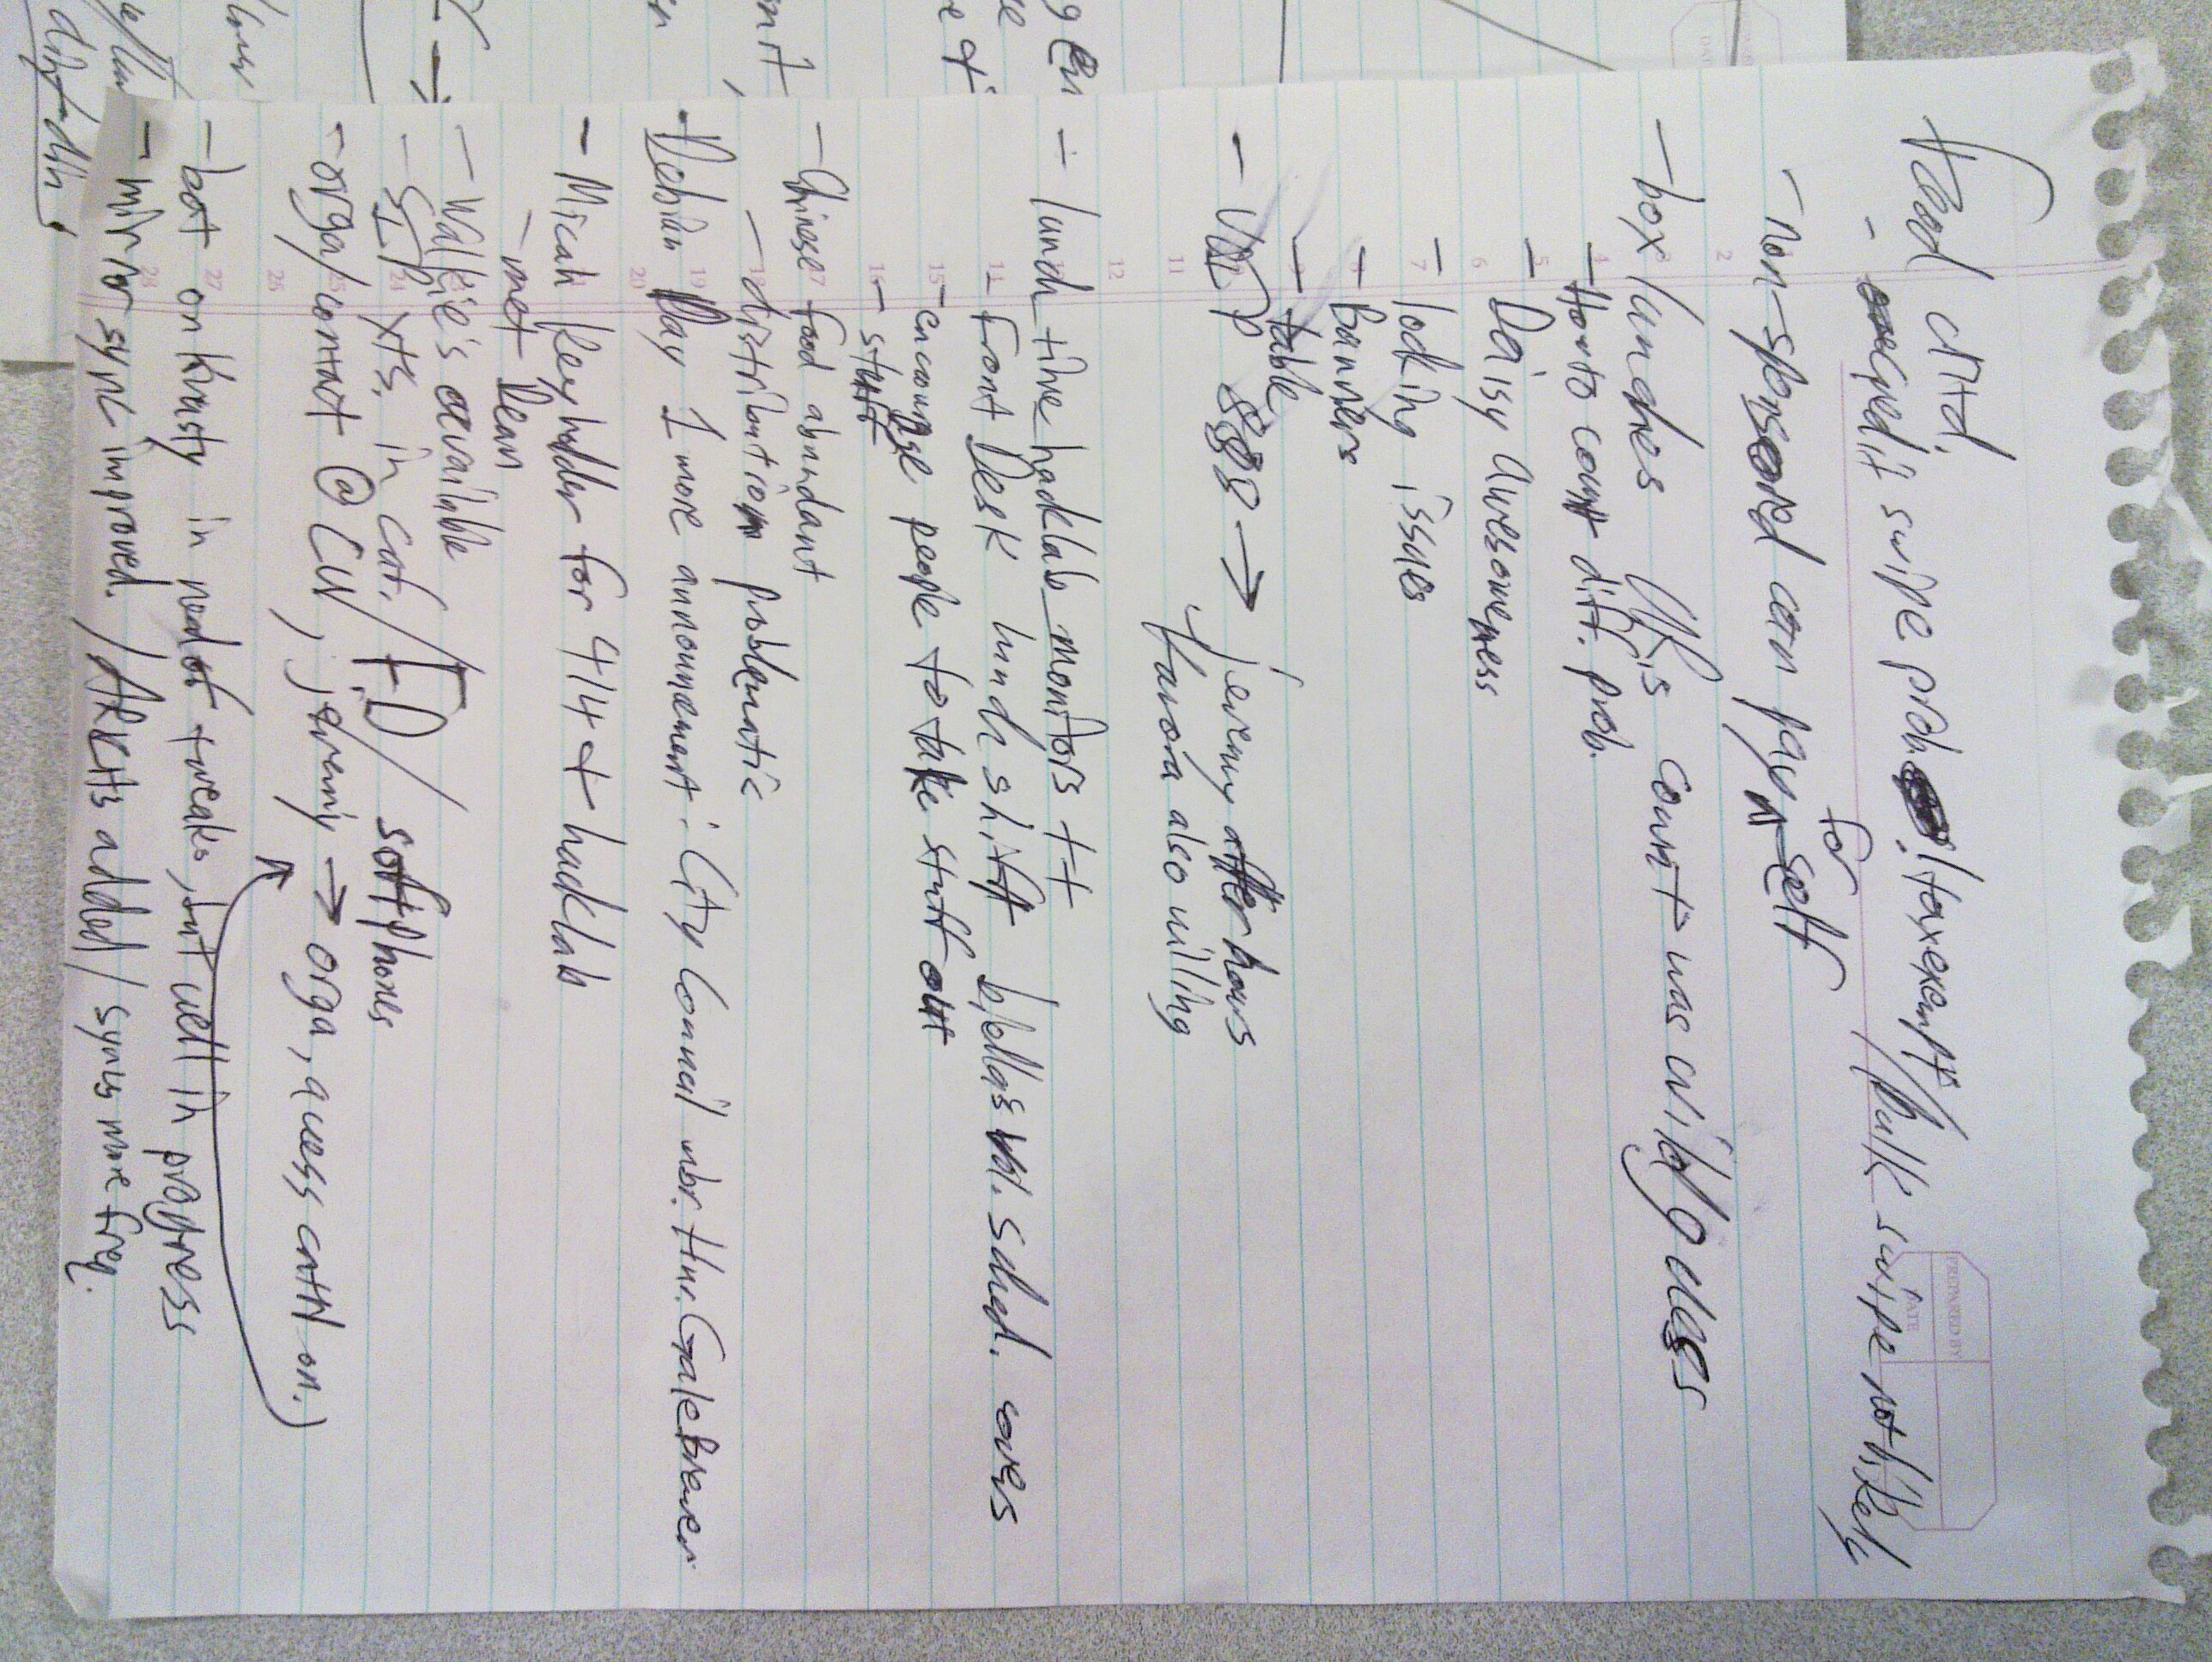 Food crtd.
- credit swipe prob. / taxexempt / bulk swipe not likely
- non-sponsored can pay for self
- box lunches this count was wildguess
- How to count diff. prob.
- Daisy Awesomeness
- lodging issues
- Banners
- table
- 888 → jeremy after hours
also willing
- lunch time hacklab monitors ++
- Front Desk lunch shift sched. covers
- encourage people to take stuff out
- stuff
- Chinese food abundant
- distribution problematic
- Debian Day 1 more announcement: City Council mbr. Hnr. Gale Brewer
- Micah keyholder for 414 & hacklab
- met Dean
- Walkie's available
- SIP xts. in cat. / FD / softphones
- orga/contact @ CU, jeremy → orga, access cntrl on.)
- bot on Krusty in need of tweaks, but well in progress
- mirror sync improved / ARCHs added / syncs more freq.
PREPARED BY
DATE
2
4
5
6
7
11
12
15
16
17
18
19
20
24
26
27
28